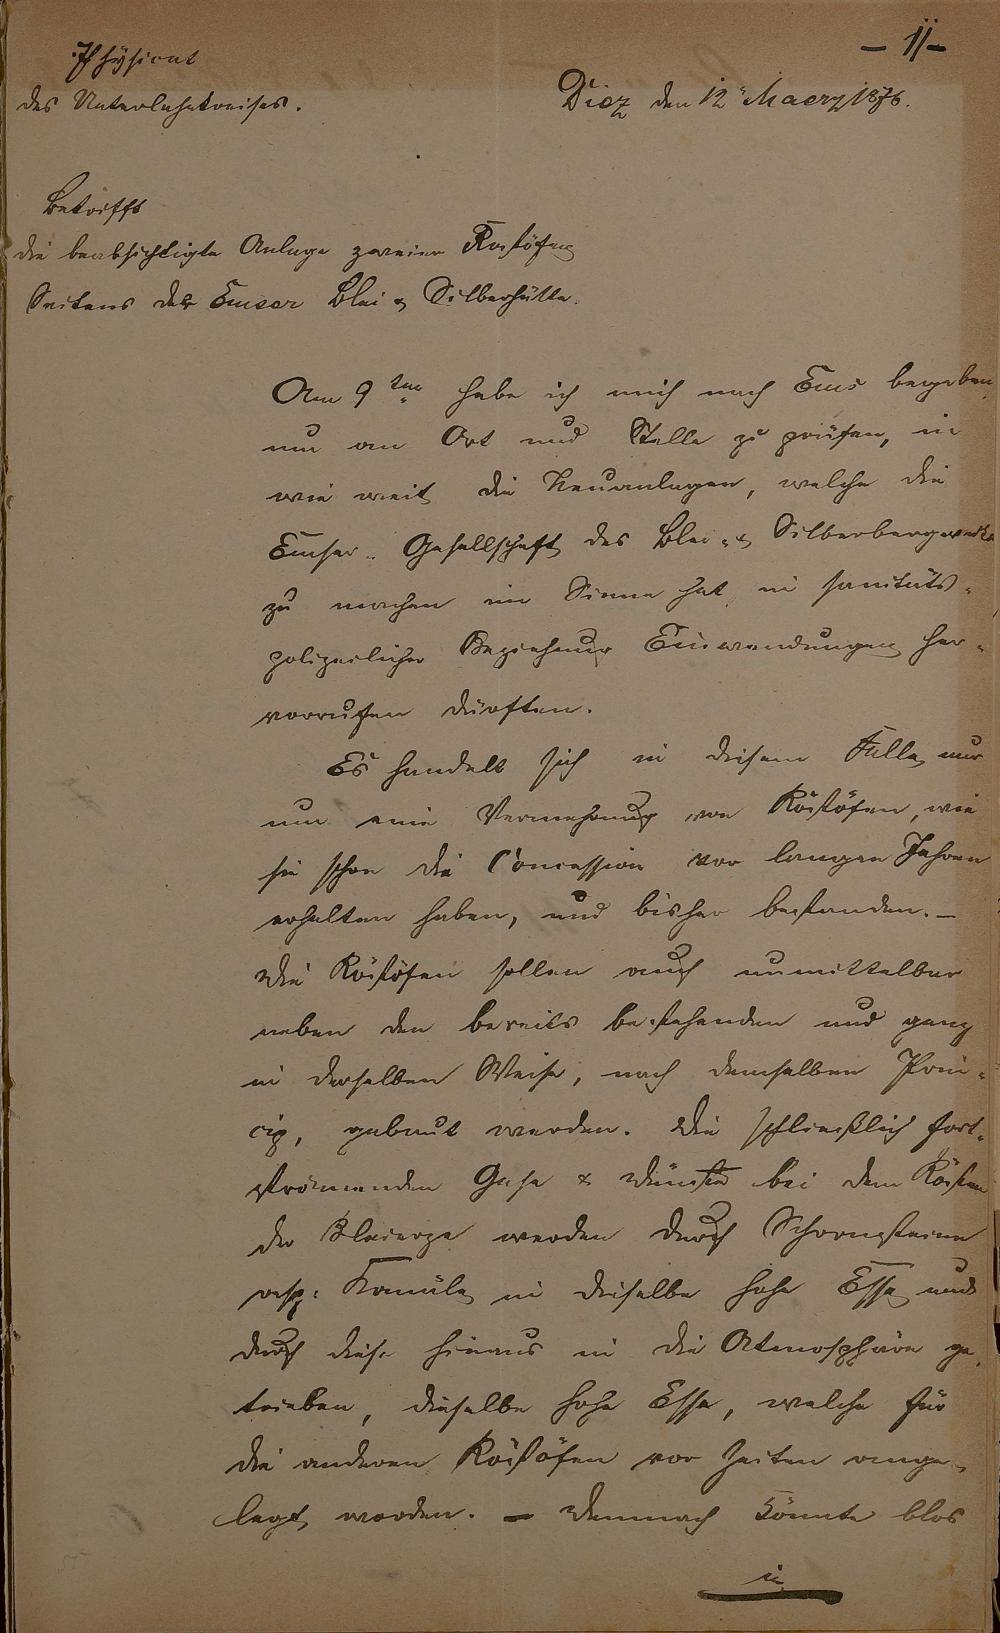 - 11 -
Physicat
des Unterlahnkreises.
Diez den 12 Maerz 1876.
Betrifft
die beabsichtigte Anlage zweier Röstöfen
Seitens der Emser Blei & Silberhütte.
Am 9ten habe ich mich nach Ems begeben,
um an Ort und Stelle zu prüfen, in
wie weit die Neuanlagen, welche die
Emser Gesellschaft des Blei- & Silberbergwerks
zu machen im Sinne hat, in sanitäts-
polizeilicher Beziehung Einwendungen her-
vorrufen dürften.
Es handelt sich in diesem Falle nur
um eine Vermehrung von Röstöfen, wie
sie schon die Concession vor langen Jahren
erhalten haben, und bisher bestanden. -
Die Röstöfen sollen auch unmittelbar
neben den bereits bestehenden und ganz
in derselben Weise, nach demselben Prin-
cip, gebaut werden. Die schließlich fort-
strömenden Gase & Dünste bei dem Rösten
der Bleierze werden durch Schornsteine
resp: Kanäle in dieselbe hohe Esse und
durch diese hinaus in die Atmosphäre ge-
trieben, dieselbe hohe Esse, welche für
die anderen Röstöfen vor Zeiten ange-
legt worden. - Demnach könnte blos
in